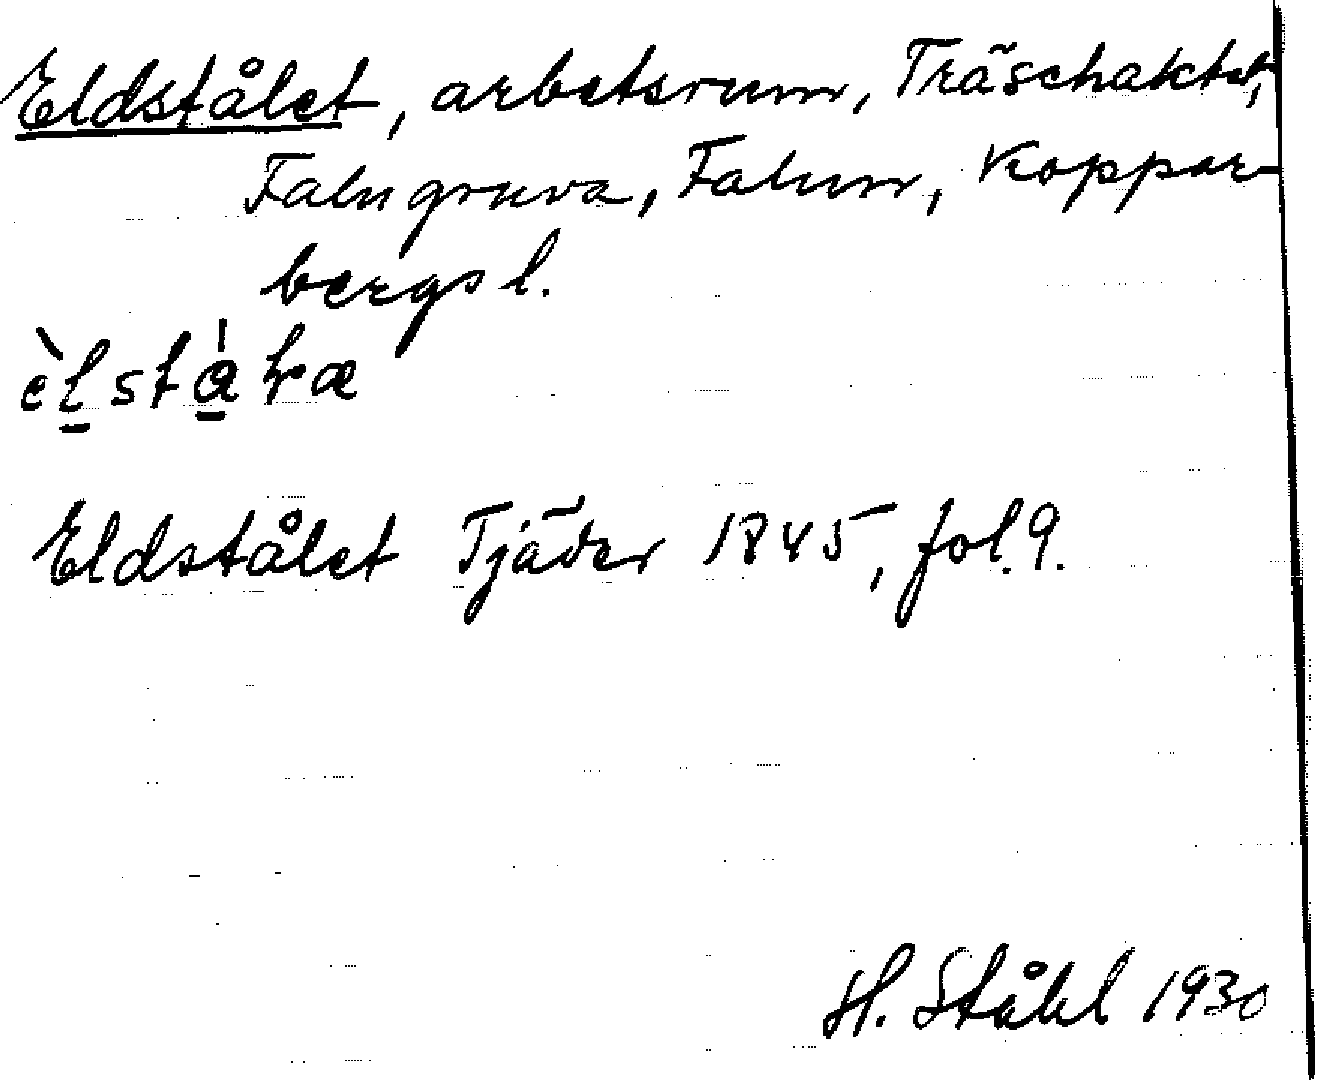 Eldstålet, arbetsrum, Träschaktet,
Falu gruva, Falun, Koppar-
bergs l.
Eldstålet Tjäder 1845, fol. 9.
H. Ståhl 1930